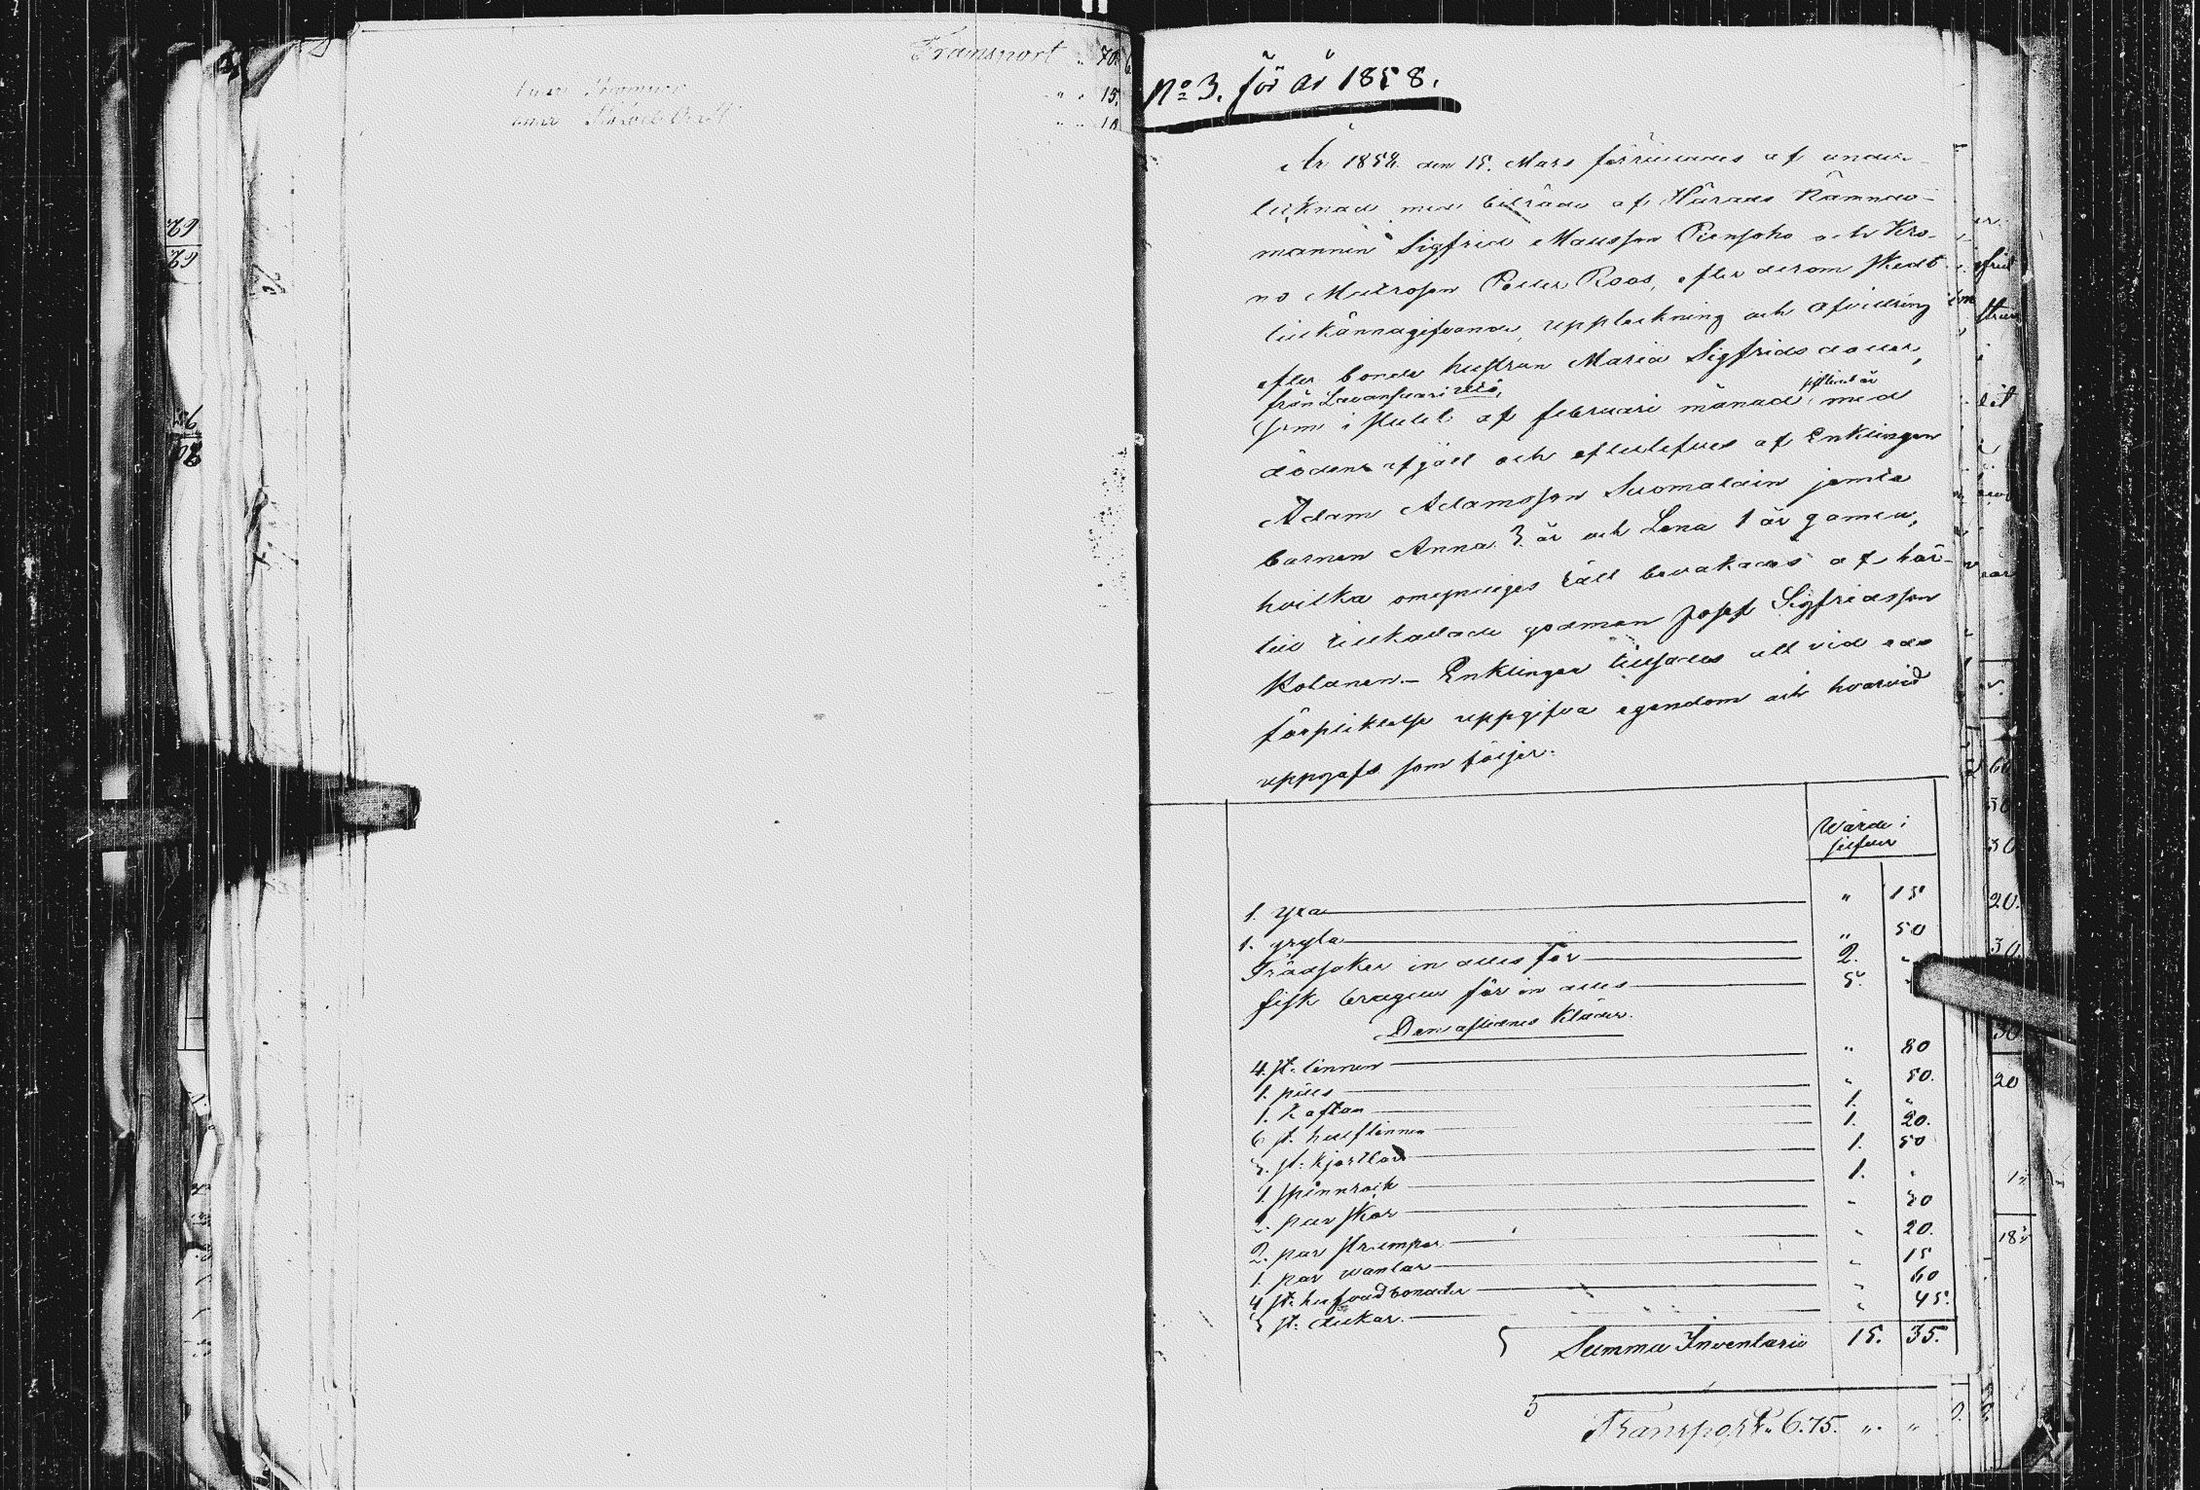 Transport " 70. 6
" " 15.
" " 10
No 3. för år 1858.
År 1858 den 15. Mars förrättades af under-
tecknad med biträde af Härads Nämnde-
mannen Sigfrid Mattsson Pienjoho och Kro-
no Matrosen Petter Roos, efter derom skedt
tillkännagifvande, uppteckning och afvittring
efter bonde hustrun Maria Sigfridsdotter,
från Lavansaari
som i slutet af februari månad sistledet år med
döden afgått och efterlefves af Enklingen
Adam Adamsson Suomalain jemte
barnen Anna 3 år och Lena 1 år gamla,
hvilka omyndiges rätt bevakades af här-
till tillkallade godman Josef Sigfridsson
Kolanen.- Enklingen tillsades att vid eds
förpliktelse uppgifva egendom och hvarvid
uppgafs som följer.
Wärde i
silfver
1. yxa " 15
1. gryta " 50
Trädsaker in alles för 2. "
fisk bragder för in alles 5. "
Den aflidnes kläder.
4. st. linnen " 80
1. päls " 50.
1. kaftan 1. "
6 st. halflinnen 1. 20.
3. st. kjortlar 1. 50
1. spinnrock 1. "
2. par skor " 30
2. par strumpor " 20.
1. par vantar " 15
4 st. hufvudbonader " 60
3 st. dukar. " 45.
Summa Inventarii 15. 35.
Transport. 6.75. " "